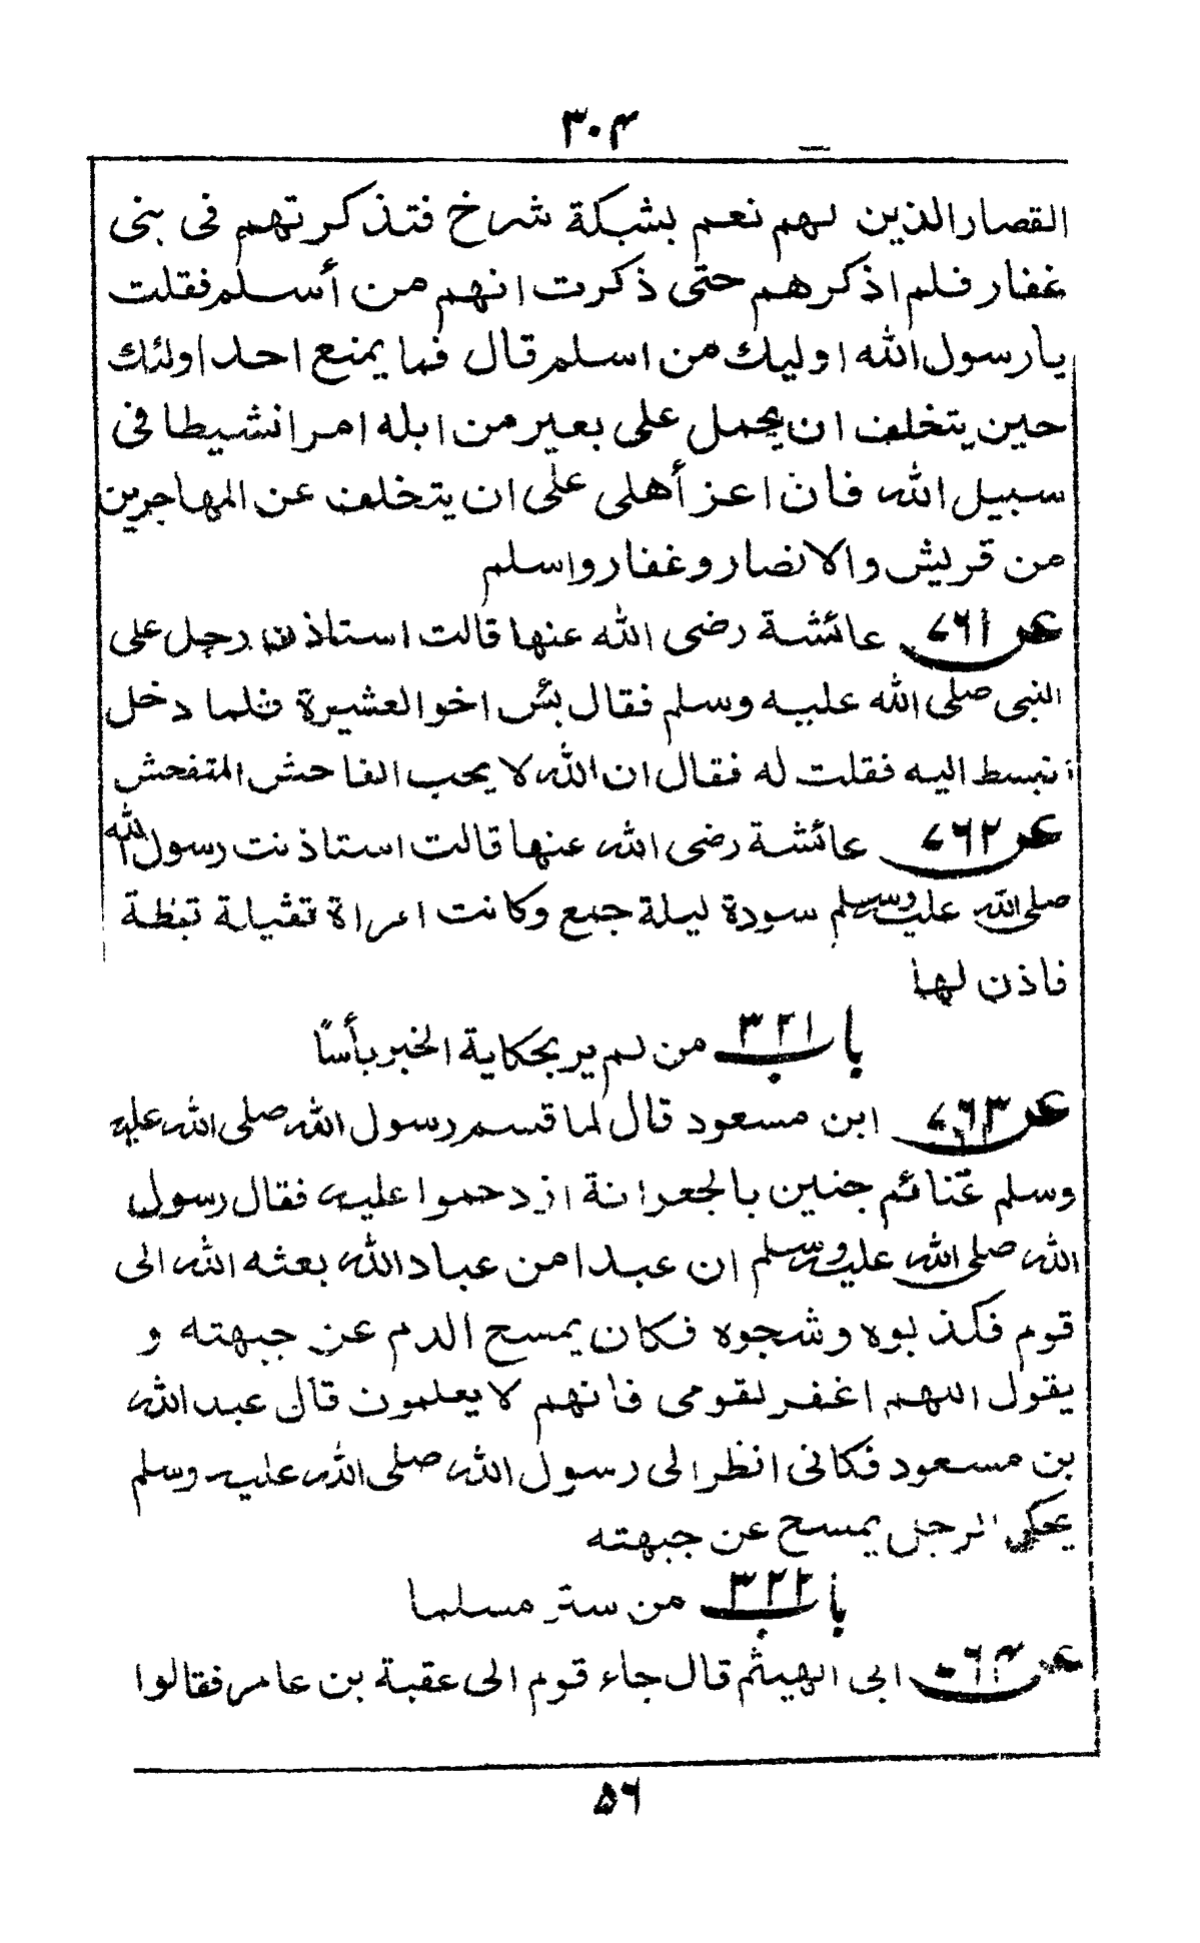 ۳۰۴
القصار الذين لهم نعم بشبكة شرخ فتذكرتهم فى بنى
غفار فلم اذكرهم حتى ذكرت انهم من أسلم فقلت
يا رسول الله اوليك من اسلم قال فما يمنع احد اولئك
حين يتخلف ان يحمل على بعير من ابله امرا نشيطا فى
سبيل الله فان اعز أهلى على ان يتخلف عن المهاجرين
من قريش والانصار وغفار واسلم
عن ۷۶۱ عائشة رضى الله عنها قالت استاذن رجل على
النبى صلى الله عليه وسلم فقال بئس اخو العشيرة فلما دخل
انبسط اليه فقلت له فقال ان الله لا يحب الفاحش المتفحش
عن ۷۶۲ عائشة رضى الله عنها قالت استاذنت رسول الله
صلى الله عليه وسلم سودة ليلة جمع وكانت امراة ثقيلة ثبطة
فاذن لها
باب ۳۲۱ من لم ير بحكاية الخبر بأسًا
عن ۷۶۳ ابن مسعود قال لما قسم رسول الله صلى الله عليه
وسلم غنائم حنين بالجعرانة ازدحموا عليه فقال رسول
الله صلى الله عليه وسلم ان عبدا من عباد الله بعثه الله الى
قوم فكذبوه وشجوه فكان يمسح الدم عن جبهته و
يقول اللهم اغفر لقومى فانهم لا يعلمون قال عبد الله
بن مسعود فكانى انظر الى رسول الله صلى الله عليه وسلم
يحكى الرجل يمسح عن جبهته
باب ۳۲۲ من ستر مسلما
عن ۷۶۴ ابى الهيثم قال جاء قوم الى عقبة بن عامر فقالوا
۵۶